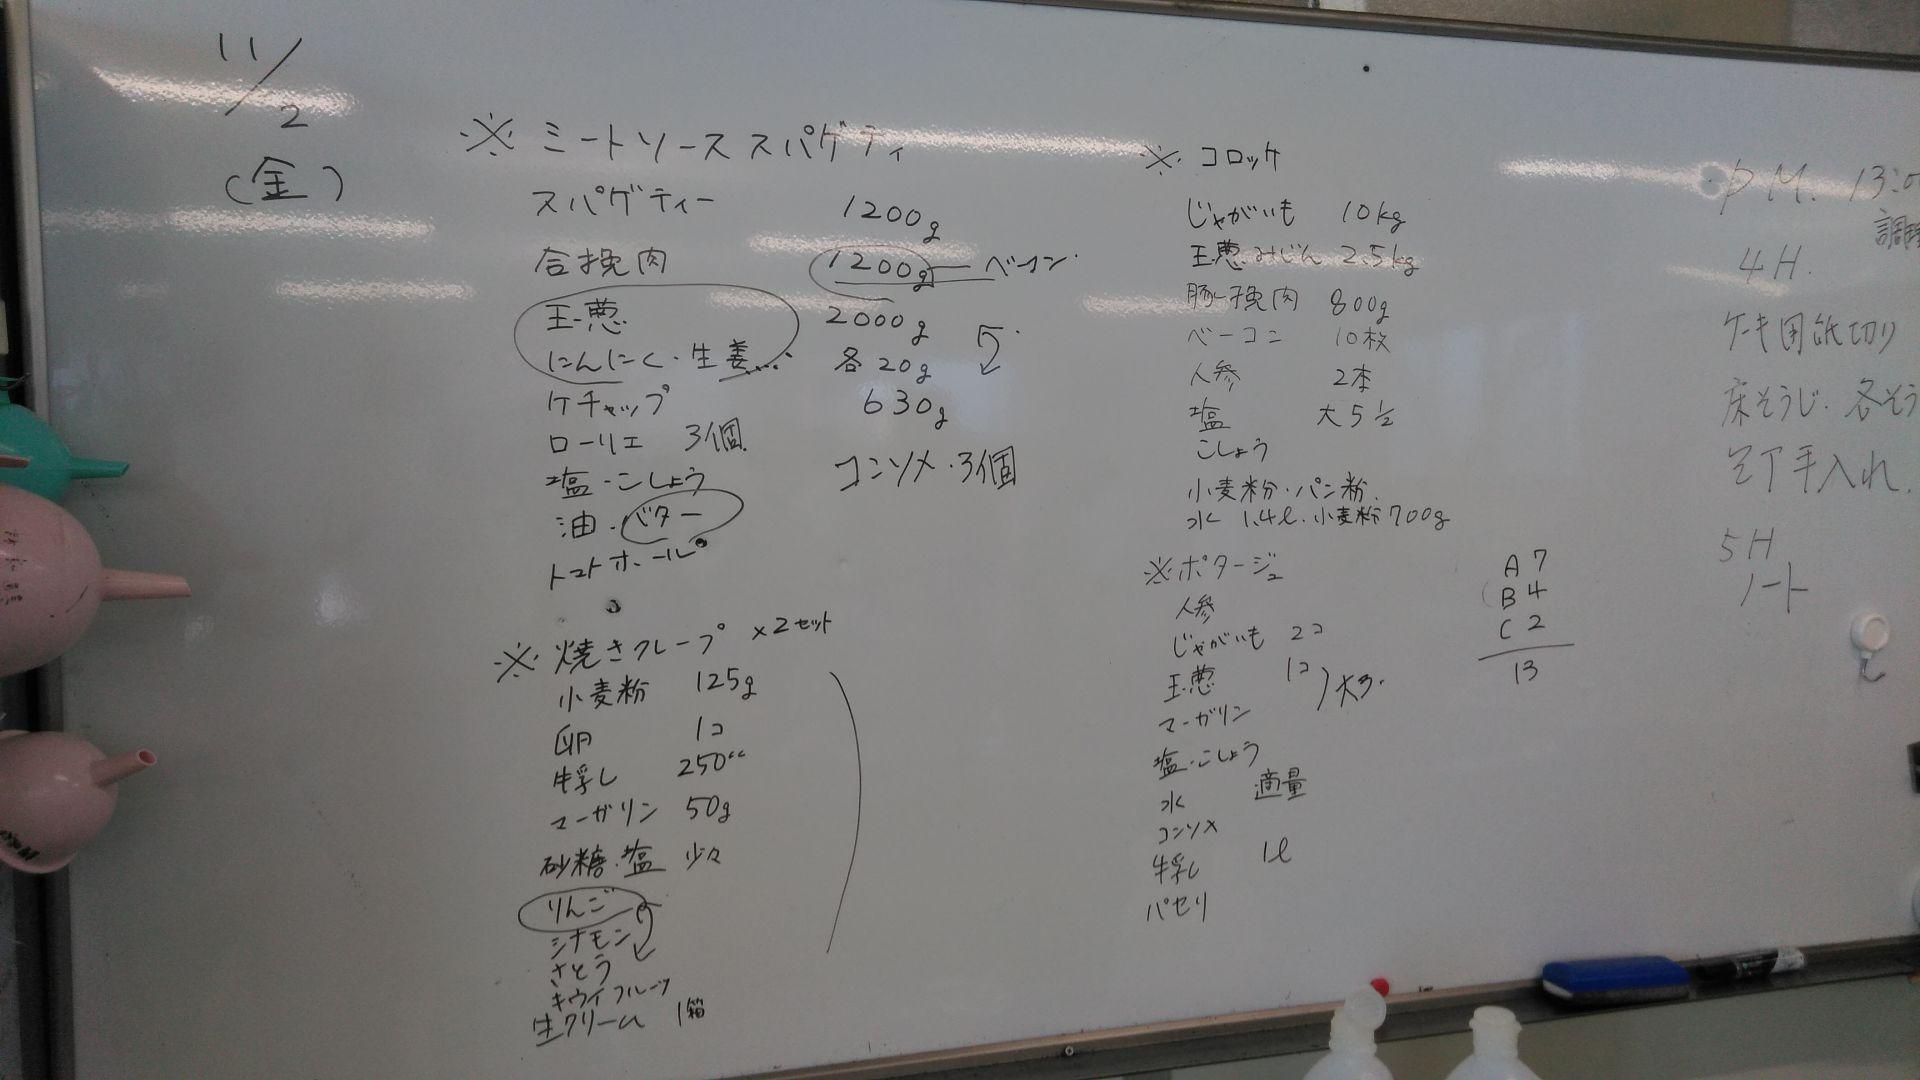 11/2
(金)
※ミートソーススパゲティ
スパゲティー 1200g
合挽肉 1200g ベーコン
玉葱 2000g
にんにく・生姜… 各20g
ケチャップ 630g
ローリエ 3個
塩・こしょう コンソメ・3個
油・バター
トマトホール
※焼きクレープ ×2セット
小麦粉 125g
卵 1コ
牛乳 250cc
マーガリン 50g
砂糖・塩 少々
りんご
シナモン
さとう
キウイフルーツ
生クリーム 1箱
※コロッケ
じゃがいも 10kg
玉葱みじん 2.5kg
豚挽肉 800g
ベーコン 10枚
人参 2本
塩 大5 1/2
こしょう
小麦粉・パン粉
水 1.4ℓ・小麦粉700g
※ポタージュ
人参
じゃがいも 2コ
玉葱 1コ
マーガリン
塩・こしょう
水 適量
コンソメ
牛乳 1ℓ
パセリ
A 7
B 4
C 2
13
P.M. 13:0
調理
4H.
ケーキ用紙切り
床そうじ・各そう
包丁手入れ
5H
ノート